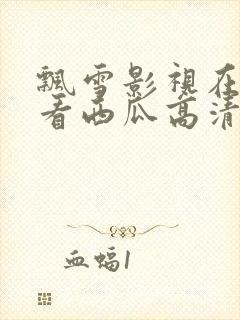 飄雪影視在
看西瓜高清
血蝠1